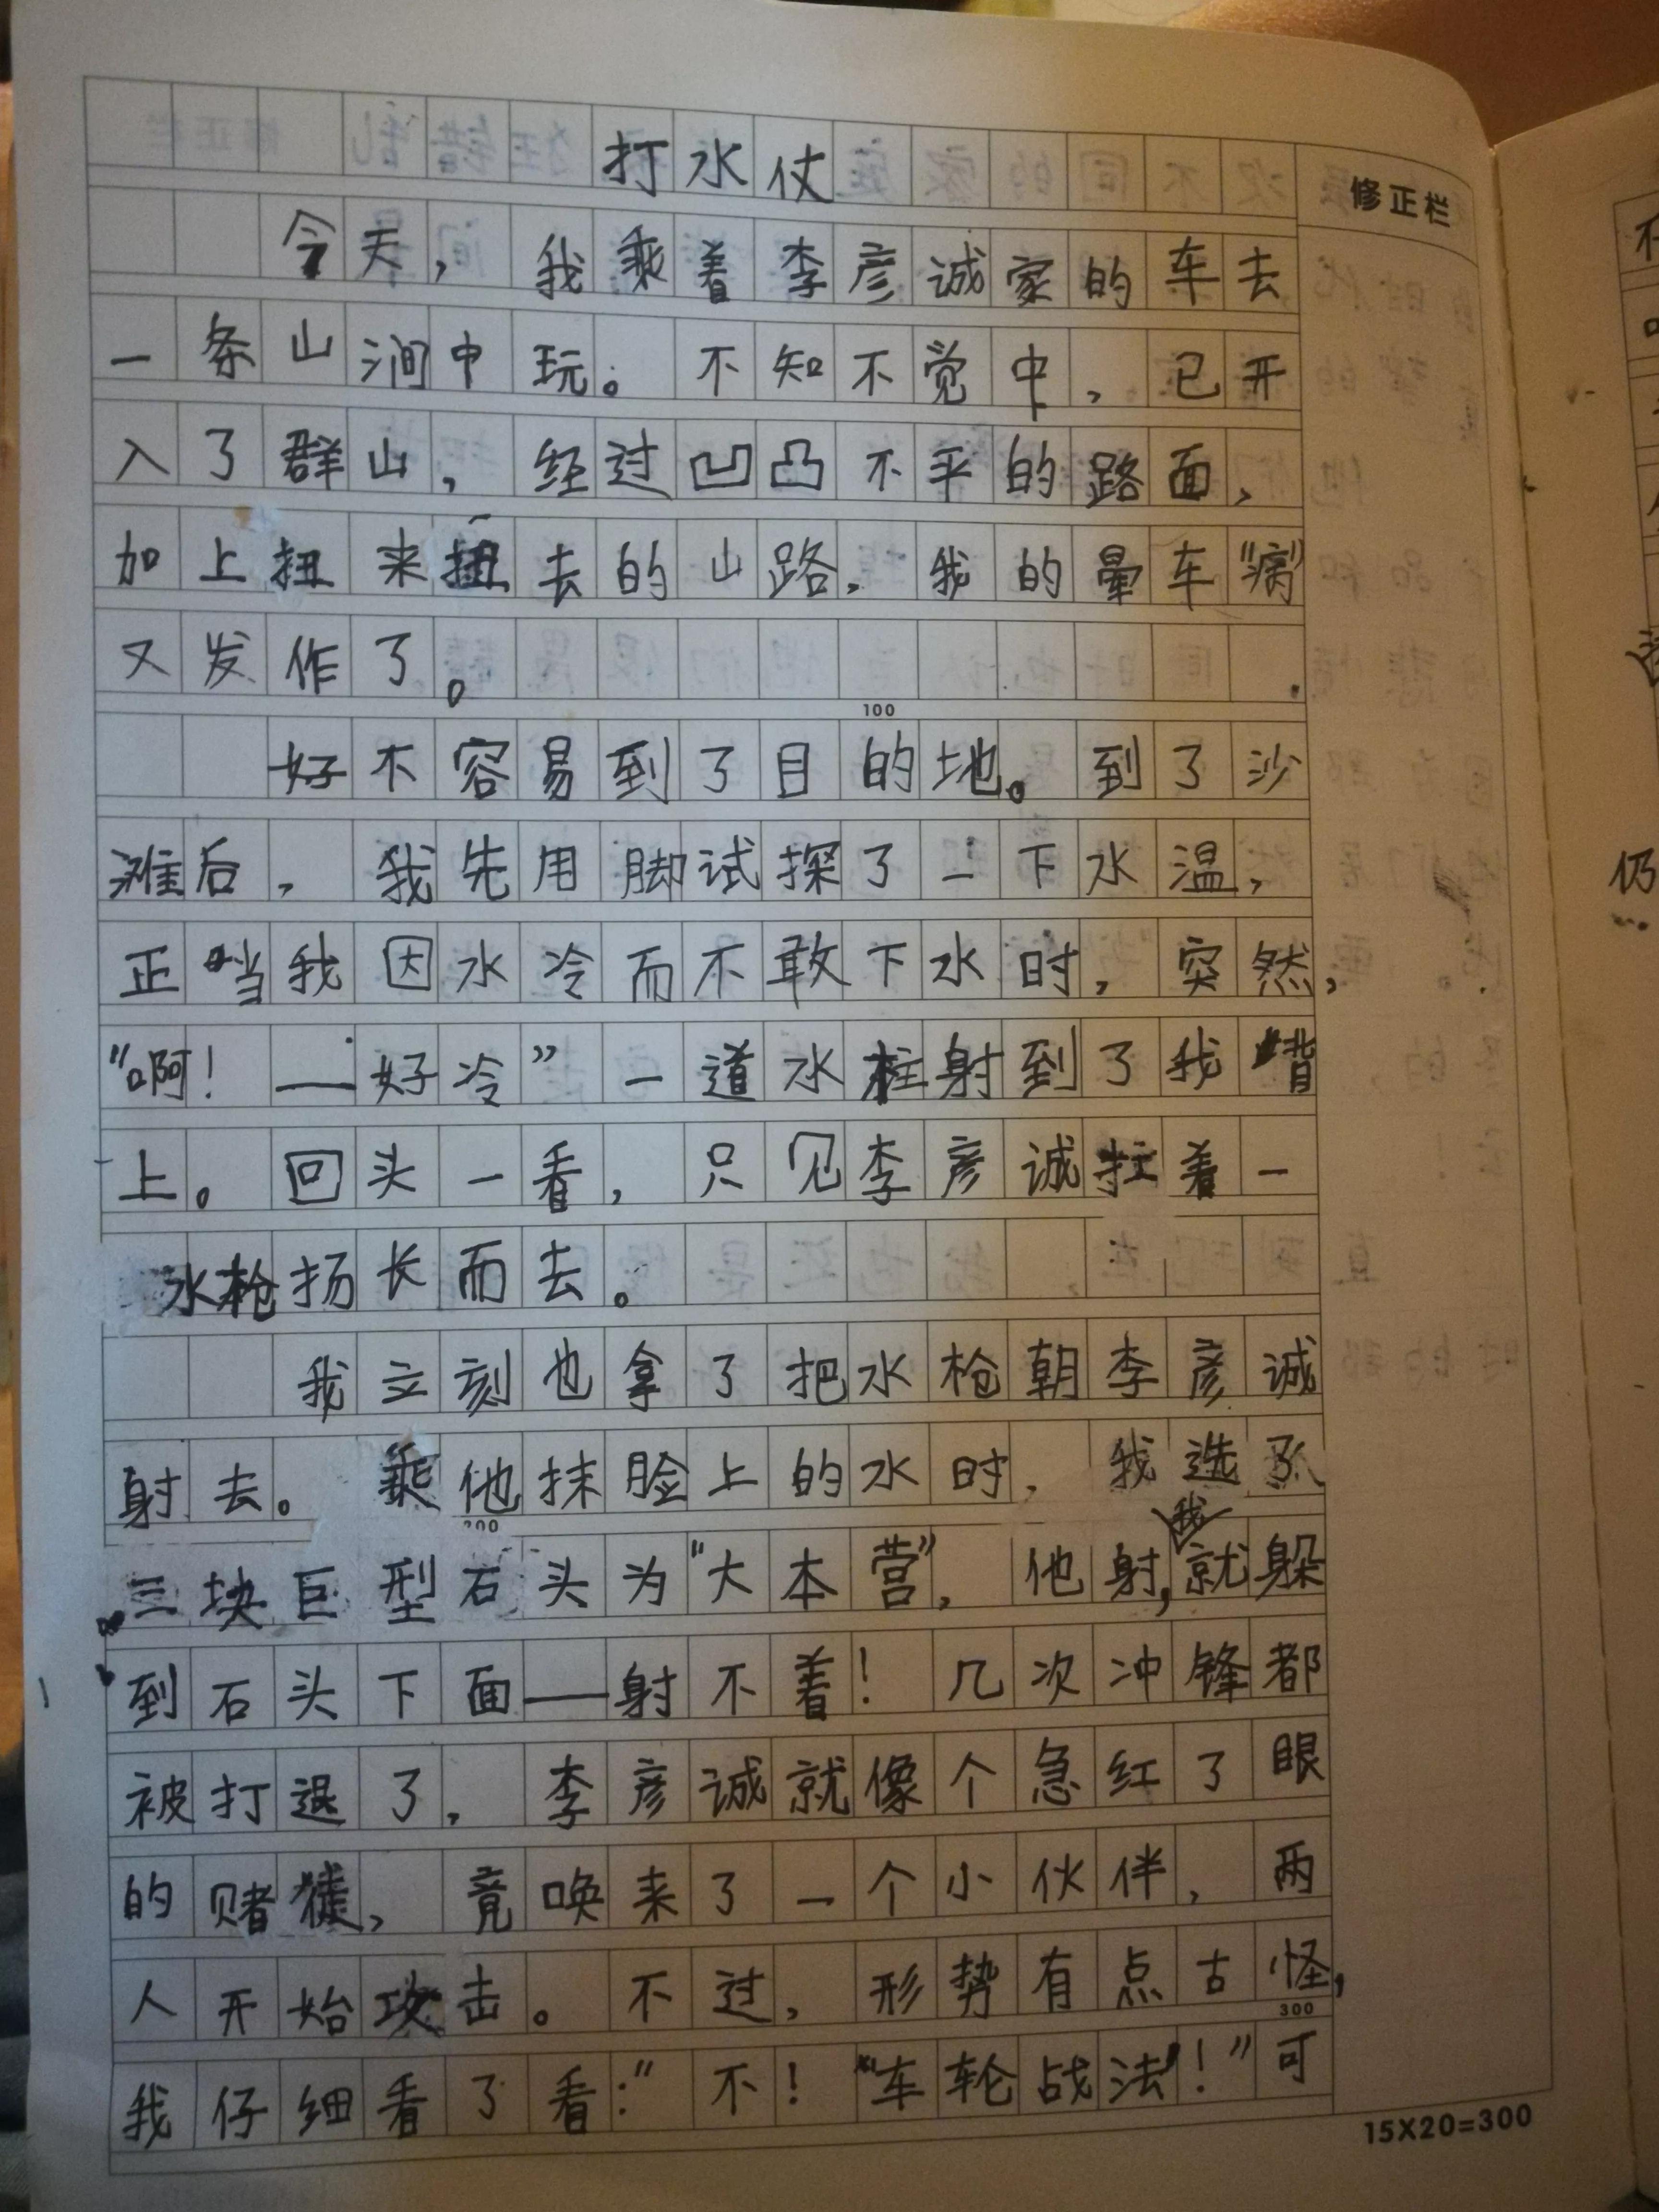 打水仗
修正栏
今天，我乘着李彦诚家的车去
一条山涧中玩。不知不觉中，已开
入了群山，经过凹凸不平的路面，
加上扭来扭去的山路，我的晕车“病”
又发作了。
100
好不容易到了目的地。到了沙
滩后，我先用脚试探了一下水温，
正当我因水冷而不敢下水时，突然，
“啊！——好冷”一道水柱射到了我背
上。回头一看，只见李彦诚扛着一
水枪扬长而去。
我立刻也拿了把水枪朝李彦诚
射去。乘他抹脸上的水时，我选了
200
三块巨型石头为“大本营”，他射，我就躲
到石头下面——射不着！几次冲锋都
被打退了，李彦诚就像个急红了眼
的赌徒，竟唤来了一个小伙伴，两
人开始攻击。不过，形势有点古怪，
300
我仔细看了看：“不！“车轮战法”！”可
15X20=300
仍